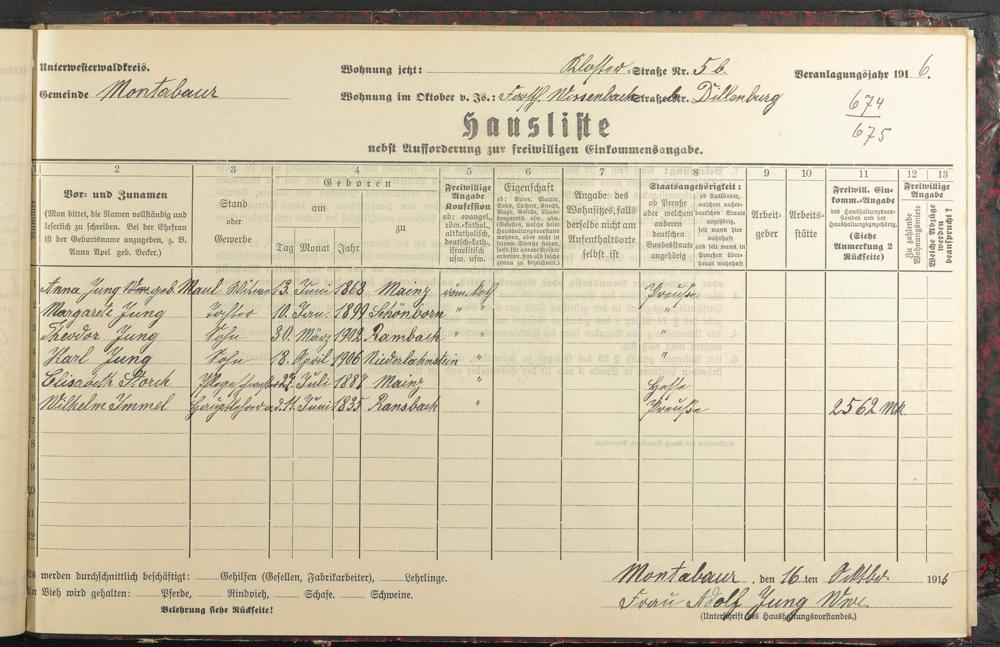 Unterwesterwaldkreis. Wohnung jetzt: Kloster-Straße Nr. 5 b. Veranlagungsjahr 1916.
Gemeinde Montabaur Wohnung im Oktober v. Js.: Wissenbach Straße Nr. Dillenburg
674
675
Hausliste
nebst Aufforderung zur freiwilligen Einkommensangabe.
2 3 4 5 6 7 8 9 10 11 12 13
Vor- und Zunamen
(Man bittet, die Namen vollständig und
leserlich zu schreiben. Bei der Ehefrau
ist der Geburtsname anzugeben, z. B.
Anna Apel geb. Becker.)
Stand
oder
Gewerbe
Geboren
am
zu
Tag Monat Jahr
Freiwillige
Angabe
Konfession
ob: evangel.,
röm.-kathol.,
altkatholisch,
deutsch-kath.,
israelitisch
usw. usw.
Eigenschaft
Angabe des
Wohnsitzes, falls
derselbe nicht am
Aufenthaltsorte
selbst ist
Staatsangehörigkeit:
ob Preuße
oder welchem
anderen
deutschen
Bundesstaate
angehörig
Arbeit-
geber
Arbeits-
stätte
Freiwill. Ein-
komm.-Angabe
des Haushaltungsvor-
standes und der
Haushaltungsangehörig.
(Siehe
Anmerkung 2
Rückseite)
Freiwillige
Angabe
Zu zahlende
Wohnungsmiete
Welche Abzüge
werden
beansprucht?
Anna Jung Wwe. geb. Maul Witwe 13. Juni 1868 Mainz röm. kath Preuße
Margarete Jung Tochter 10. Jan. 1899 Schönborn " " "
Theodor Jung Sohn 30. März 1902 Rambach " " "
Karl Jung Sohn 18. April 1906 Niederlahnstein " "
Elisabeth Storck 27. Juli 1888 Mainz " Hesse
Wilhelm Immel Hauptlehrer a.d. 11. Juni 1835 Ransbach " Preuße 2562 Mk
Es werden durchschnittlich beschäftigt: Gehilfen (Gesellen, Fabrikarbeiter), Lehrlinge.
An Vieh wird gehalten: Pferde, Rindvieh, Schafe. Schweine.
Belehrung siehe Rückseite!
Montabaur, den 16 ten Oktbr. 1915
Frau Adolf Jung Wwe.
(Unterschrift des Haushaltungsvorstandes.)